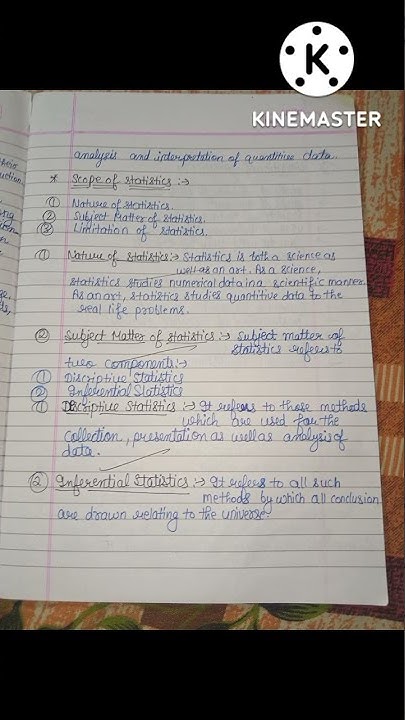 K
KINEMASTER
analysis and interpretation of quantitive data.
* Scope of statistics :→
① Nature of statistics.
② Subject Matter of statistics.
③ Limitation of statistics.
① Nature of statistics :→ Statistics is both a science as
well as an art. As a science,
statistics studies numerical data in a scientific manner.
As an art, statistics studies quantitive data to the
real life problems.
② Subject Matter of statistics :→ Subject matter of
statistics refers to
two components :→
① Discriptive Statistics
② Inferential Statistics
① Discriptive Statistics :→ It refers to those methods
which are used for the
collection, presentation as well as analysis of
data.
② Inferential Statistics :→ It refers to all such
methods by which all conclusion
are drawn relating to the universe.